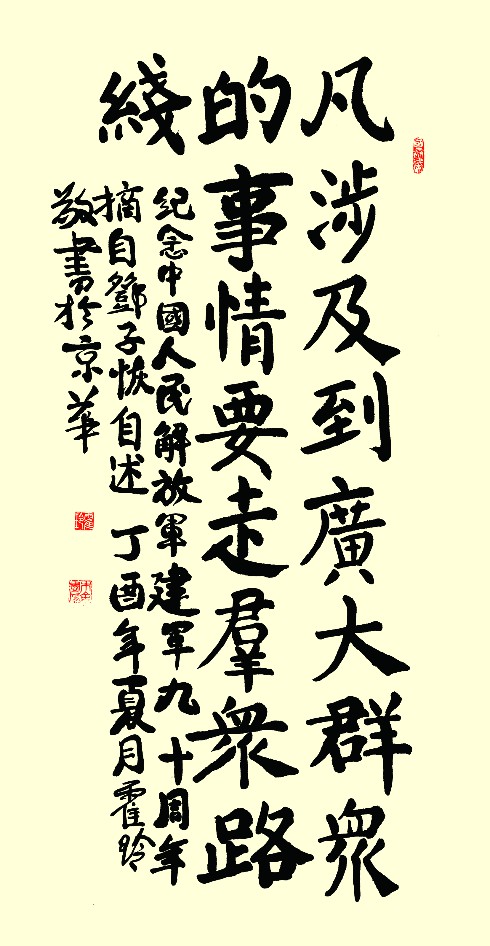 凡涉及到廣大群衆
的事情要走羣衆路
綫
紀念中國人民解放軍建軍九十周年
摘自鄧子恢自述 丁酉年夏月霍玲
敬書於京華